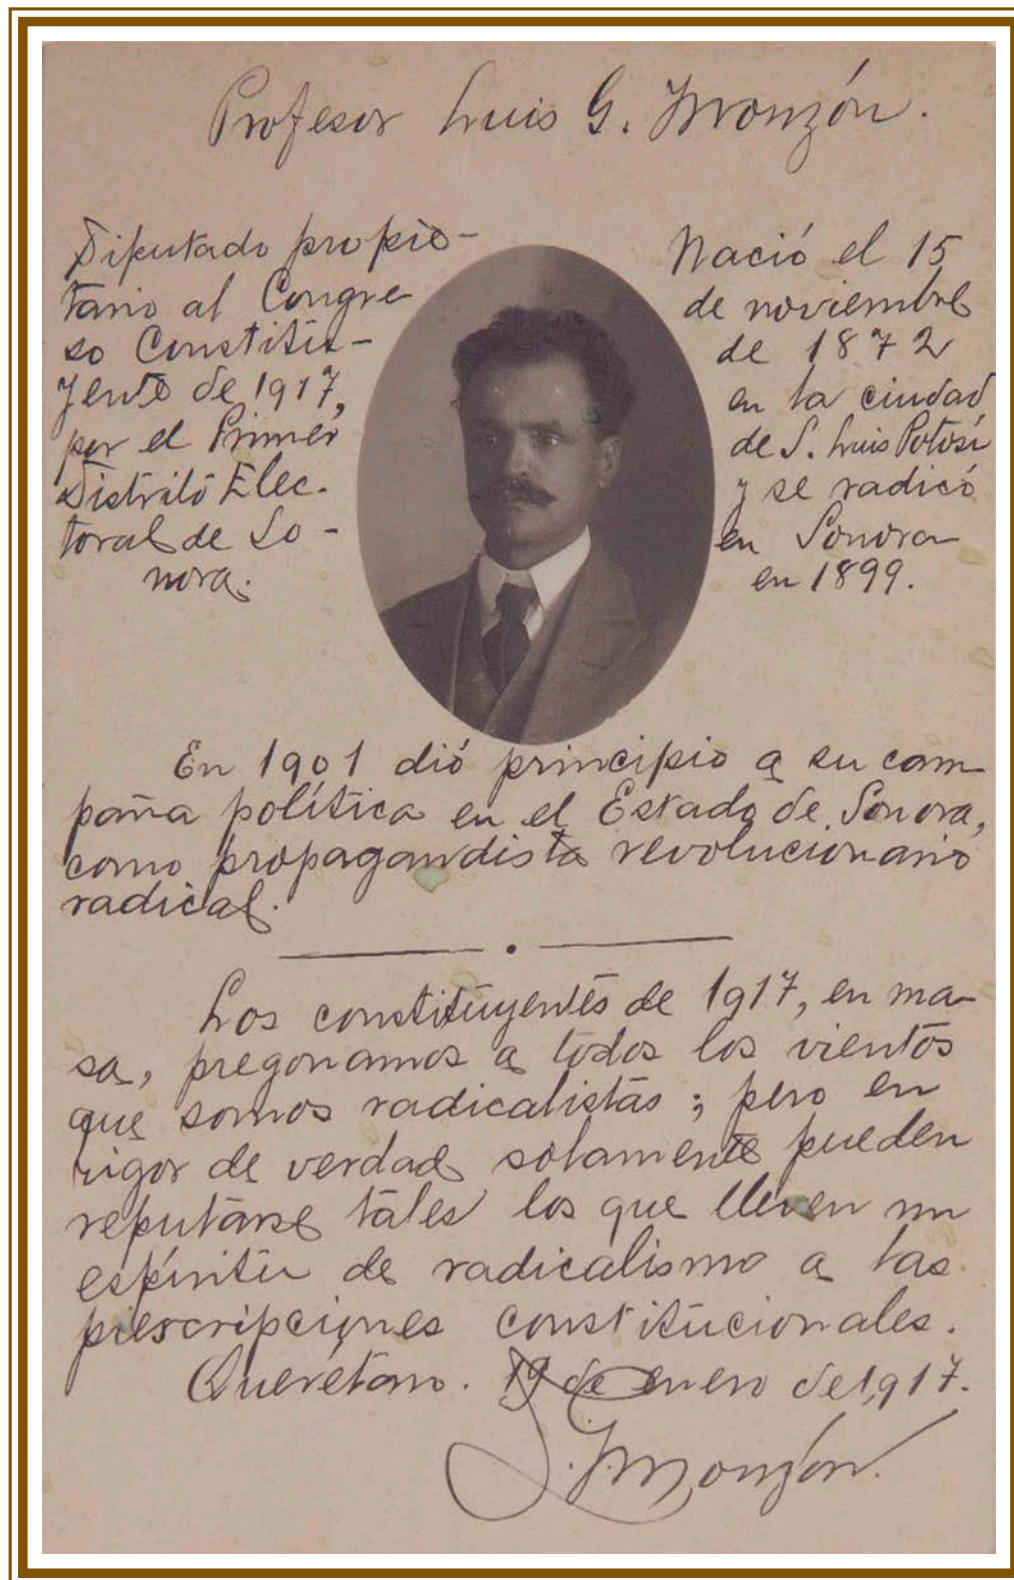 Profesor Luis G. Monzón.
Diputado propie-
tario al Congre
so Constitu-
yente de 1917,
por el Primer
Distrito Elec-
toral de So-
nora.
Nació el 15
de noviembre
de 1872
en la ciudad
de S. Luis Potosí
y se radicó
en Sonora
en 1899.
En 1901 dió principio a su cam-
paña política en el Estado de Sonora,
como propagandista revolucionario
radical.
Los constituyentes de 1917, en ma-
sa, pregonamos a todos los vientos
que somos radicalistas; pero en
rigor de verdad solamente pueden
reputarse tales los que lleven un
espíritu de radicalismo a las
prescripciones constitucionales.
Querétaro. 19 de enero de 1,917.
L. G. Monzón.